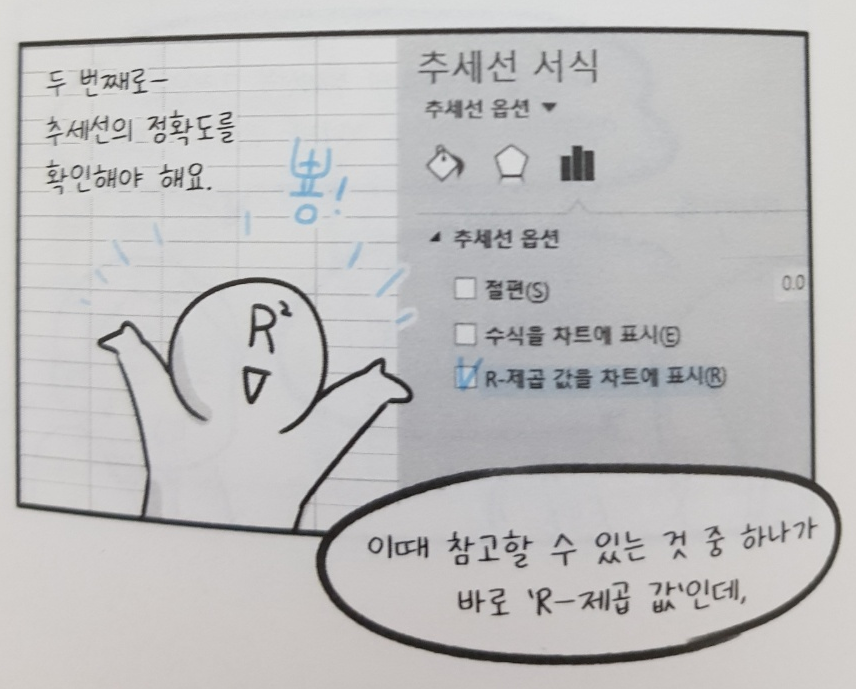 두 번째로-
추세선의 정확도를
확인해야 해요.
뿅!
R²
추세선 서식
추세선 옵션
추세선 옵션
절편(S)
0.0
수식을 차트에 표시(E)
R-제곱 값을 차트에 표시(R)
이때 참고할 수 있는 것 중 하나가
바로 'R-제곱 값'인데,